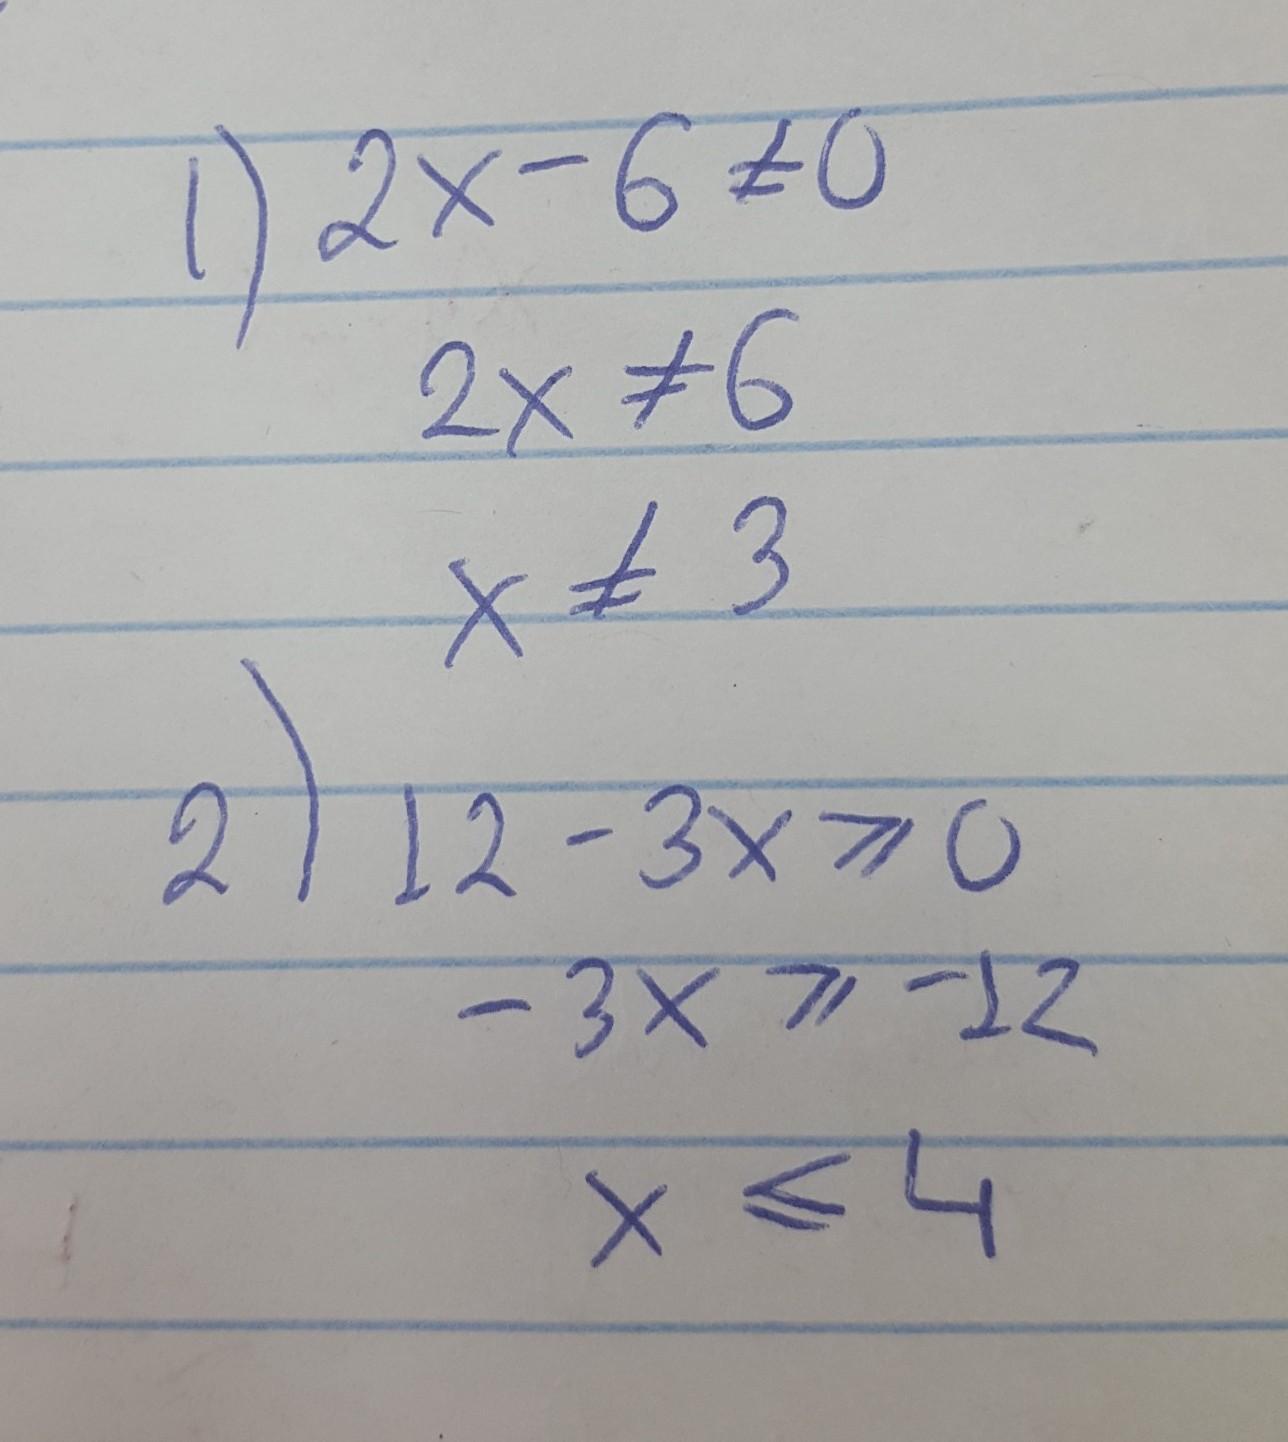 1) 2x - 6 ≠ 0
2x ≠ 6
x ≠ 3
2) 12 - 3x ⩾ 0
- 3x ⩾ -12
x ⩽ 4